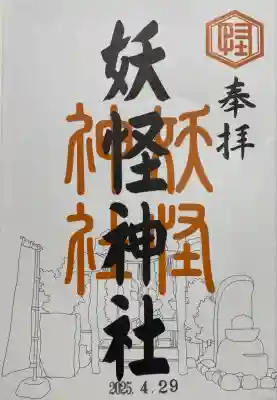 怪
奉拝
妖怪神社
妖怪
神社
2025. 4. 29